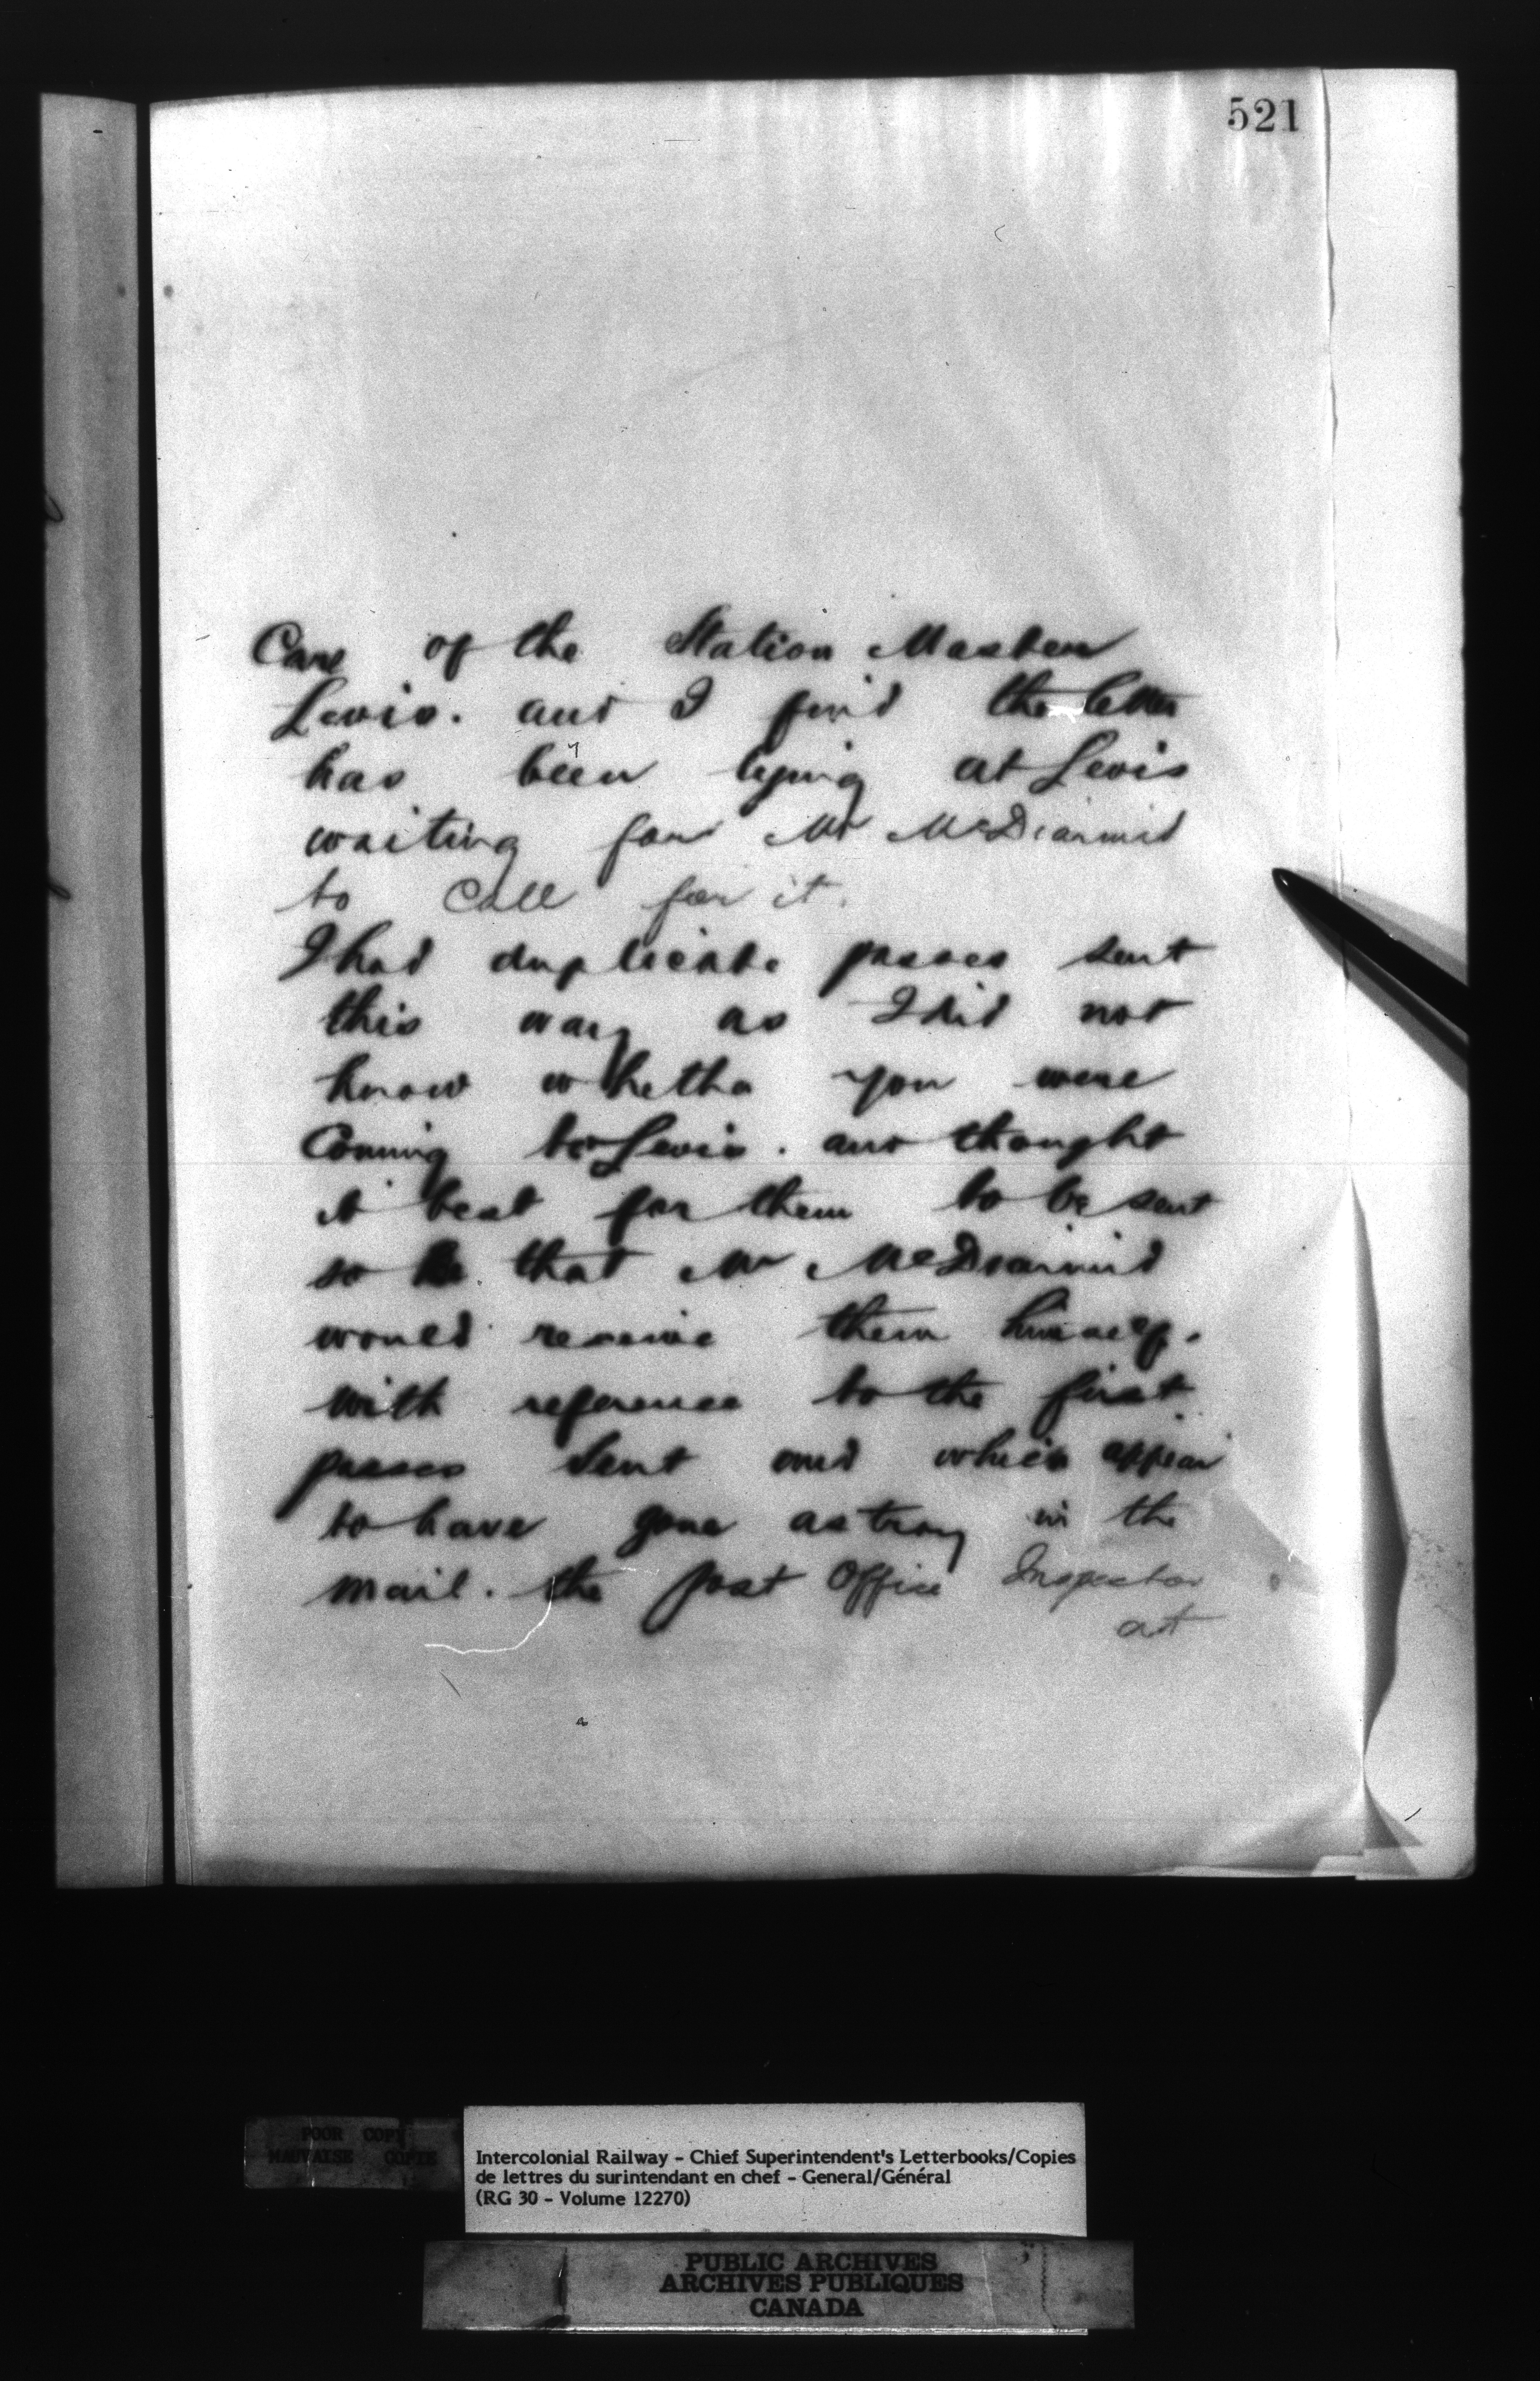 521
Care of the Station Master
Levis. and I find the letter
has been lying at Levis
waiting for Mr McDiarmid
to call for it.
I had duplicate passes sent
this way as I did not
know whether you were
Coming to Levis. and thought
it best for them to be sent
so that Mr McDiarmid
would receive them himself.
with reference to the first
passes sent and which appear
to have gone astray in the
mail. the post Office Inspector
at
POOR COPY
MAUVAISE COPIE
Intercolonial Railway - Chief Superintendent's Letterbooks/Copies
de lettres du surintendant en chef - General/Général
(RG 30 - Volume 12270)
PUBLIC ARCHIVES
ARCHIVES PUBLIQUES
CANADA